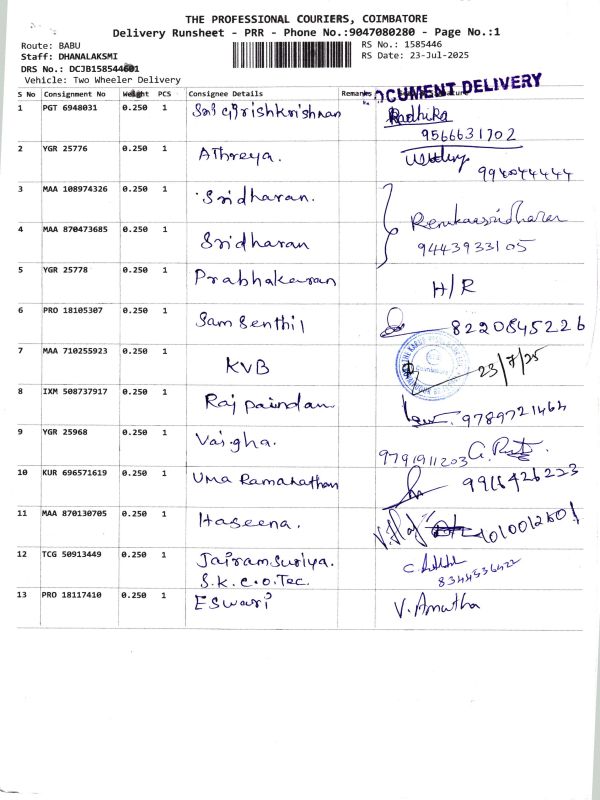 THE PROFESSIONAL COURIERS, COIMBATORE
Delivery Runsheet - PRR - Phone No.:9047080280 - Page No.:1
Route: BABU
Staff: DHANALAKSMI
DRS No.: DCJB158544601
Vehicle: Two Wheeler Delivery
RS No.: 1585446
RS Date: 23-Jul-2025
DOCUMENT DELIVERY
S No Consignment No Weight PCS Consignee Details Remarks
1 PGT 6948031 0.250 1 Sri Girishkrishnan Radhika
9566631702
2 YGR 25776 0.250 1 Athreya.
994044444
3 MAA 108974326 0.250 1 Sridharan.
Renukaasridharan
4 MAA 870473685 0.250 1 Sridharan 9443933105
5 YGR 25778 0.250 1 Prabhakaran H/R
6 PRO 18105307 0.250 1 Sam Senthil 8220845226
7 MAA 710255923 0.250 1 KVB 23/7/25
8 IXM 508737917 0.250 1 Raj paindan 9789721464
9 YGR 25968 0.250 1 Vaigha. 9791911203
10 KUR 696571619 0.250 1 Uma Ramanathan 9916426223
11 MAA 870130705 0.250 1 Haseena.
12 TCG 50913449 0.250 1 Jairamsuriya.
S.K.C.O.Tec. 8344536422
13 PRO 18117410 0.250 1 Eswari V. Amutha